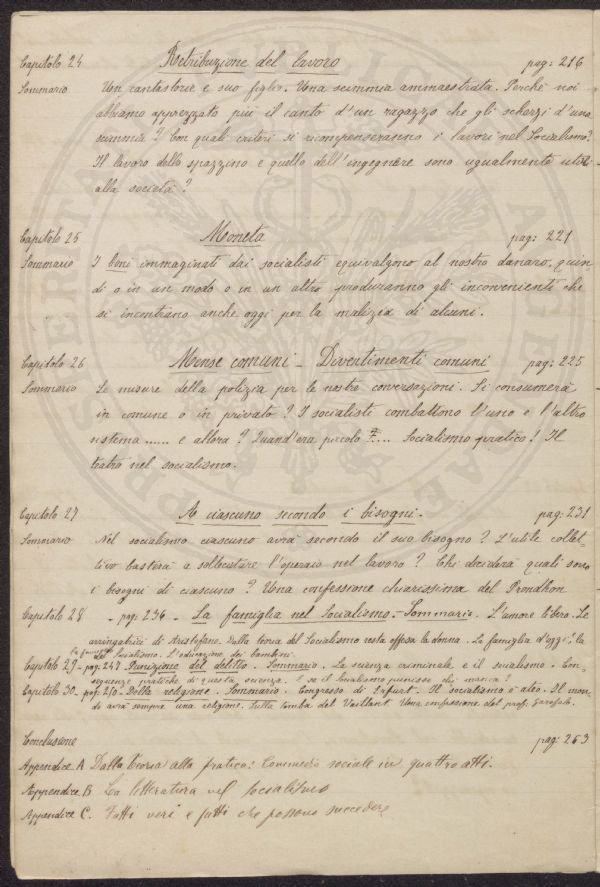 Capitolo 24 Retribuzione del lavoro pag: 216
Sommario Un cantastorie e suo figlio. Una scimmia ammaestrata. Perchè noi
abbiamo apprezzato più il canto d'un ragazzo che gli scherzi d'una
scimmia? Con quali criteri si ricompenseranno i lavori nel Socialismo?
Il lavoro dello spazzino e quello dell'ingegnere sono ugualmente utili
alla società?
Capitolo 25 Moneta pag: 221
Sommario I boni immaginati dai socialisti equivalgono al nostro danaro, quin-
di o in un modo o in un altro produranno gli inconvenienti che
si incontrano anche oggi per la malizia di alcuni.
Capitolo 26 Mense comuni - Divertimenti comuni pag: 225
Sommario Le misure della polizia per le nostre conversazioni. Si consumerà
in comune o in privato? I socialisti combattono l'uno e l'altro
sistema...... e allora? Quand'era piccolo F.... Socialismo pratico! Il
teatro nel socialismo.
Capitolo 27 A ciascuno secondo i bisogni. pag: 231
Sommario Nel socialismo ciascuno avrà secondo il suo bisogno? L'utile collet-
tivo basterà a sollecitare l'operaio nel lavoro? Chi deciderà quali sono
i bisogni di ciascuno? Una confessione chiarissima del Proudhon
Capitolo 28 - pag: 236 - La famiglia nel Socialismo. - Sommario. L'amore libero. Le
arringatrici di Aristofane. Dalla teoria del Socialismo resta offesa la donna. La famiglia d'oggi; la
del Socialismo. L'educazione dei bambini.
Capitolo 29 - pag: 247 Punizione del delitto. Sommario. La scienza criminale e il socialismo. Con-
seguenze pratiche di questa scienza. E se il Socialismo punisse chi manca?
Capitolo 30 - pag: 250 - Della religione. Sommario. Congresso di Erfurt. Il socialismo è ateo. Il mon-
do avrà sempre una religione. Sulla tomba del Vaillant. Una confessione del prof. Garofalo.
Conclusione pag: 263
Appendice A Dalla teoria alla pratica: Commedia sociale in quattro atti.
Appendice B La letteratura nel socialismo
Appendice C. Fatti veri e fatti che possono succedere